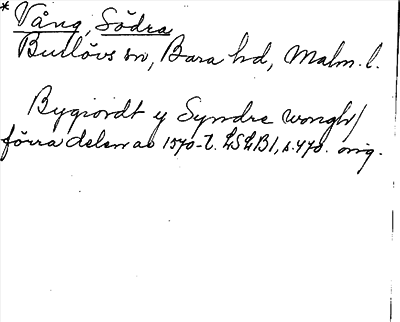 * Vång, Södra
Burlövs sn, Bara hd, Malm. l.
Bygiordt y Syndre wongh/
förra delen av 1570-t. LSLB1, s. 470. orig.